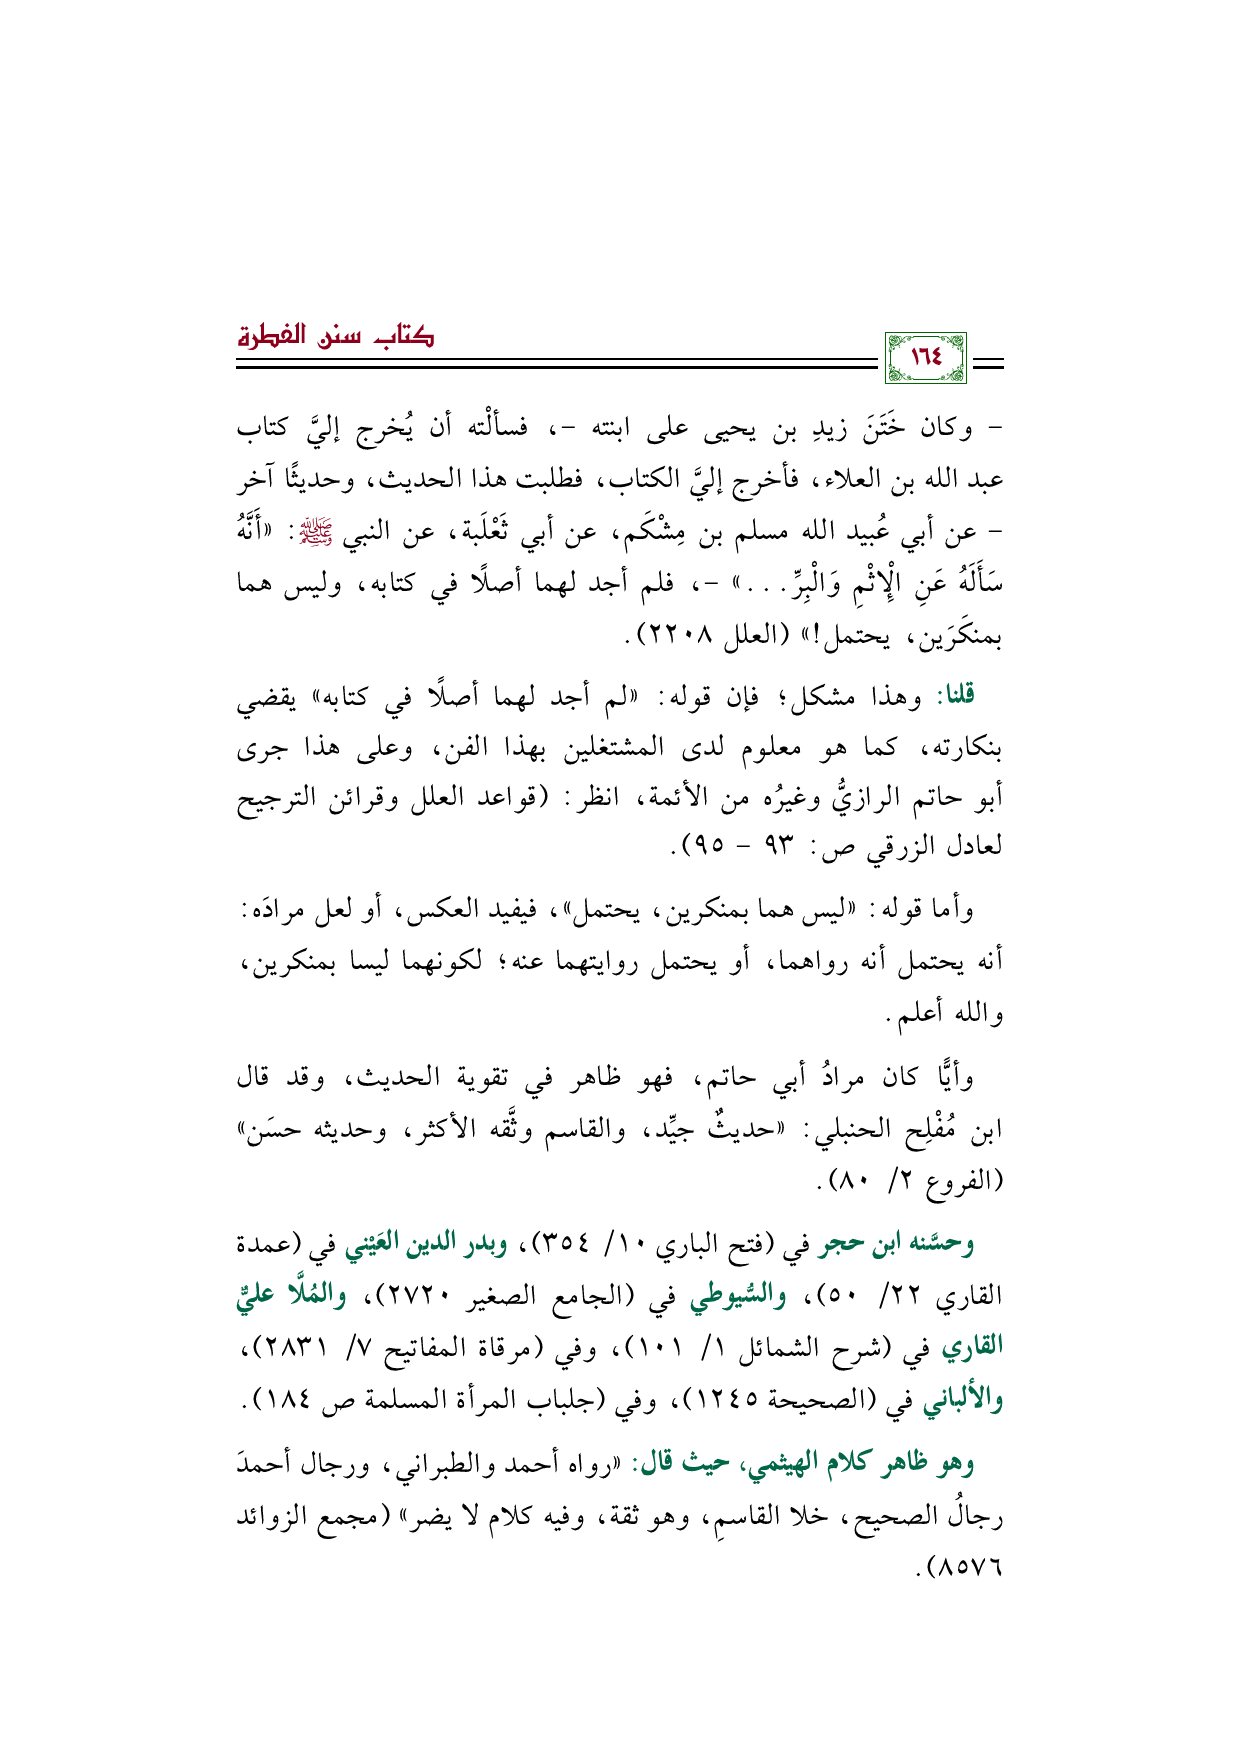 كتاب سنن الفطرة
١٦٤
- وكان خَتَنَ زيدِ بن يحيى على ابنته -، فسألْته أن يُخرج إليَّ كتاب
عبد الله بن العلاء، فأخرج إليَّ الكتاب، فطلبت هذا الحديث، وحديثًا آخر
- عن أبي عُبيد الله مسلم بن مِشْكَم، عن أبي ثَعْلَبة، عن النبي ﷺ: «أَنَّهُ
سَأَلَهُ عَنِ الْإِثْمِ وَالْبِرِّ...» -، فلم أجد لهما أصلًا في كتابه، وليس هما
بمنكَرَين، يحتمل!» (العلل ٢٢٠٨).
قلنا: وهذا مشكل؛ فإن قوله: «لم أجد لهما أصلًا في كتابه» يقضي
بنكارته، كما هو معلوم لدى المشتغلين بهذا الفن، وعلى هذا جرى
أبو حاتم الرازيُّ وغيرُه من الأئمة، انظر: (قواعد العلل وقرائن الترجيح
لعادل الزرقي ص: ٩٣ - ٩٥).
وأما قوله: «ليس هما بمنكرين، يحتمل»، فيفيد العكس، أو لعل مرادَه:
أنه يحتمل أنه رواهما، أو يحتمل روايتهما عنه؛ لكونهما ليسا بمنكرين،
والله أعلم.
وأيًّا كان مرادُ أبي حاتم، فهو ظاهر في تقوية الحديث، وقد قال
ابن مُفْلِح الحنبلي: «حديثٌ جيِّد، والقاسم وثَّقه الأكثر، وحديثه حسَن»
(الفروع ٢/ ٨٠).
وحسَّنه ابن حجر في (فتح الباري ١٠/ ٣٥٤)، وبدر الدين العَيْني في (عمدة
القاري ٢٢/ ٥٠)، والسُّيوطي في (الجامع الصغير ٢٧٢٠)، والمُلَّا عليٌّ
القاري في (شرح الشمائل ١/ ١٠١)، وفي (مرقاة المفاتيح ٧/ ٢٨٣١)،
والألباني في (الصحيحة ١٢٤٥)، وفي (جلباب المرأة المسلمة ص ١٨٤).
وهو ظاهر كلام الهيثمي، حيث قال: «رواه أحمد والطبراني، ورجال أحمدَ
رجالُ الصحيح، خلا القاسمِ، وهو ثقة، وفيه كلام لا يضر» (مجمع الزوائد
٨٥٧٦).